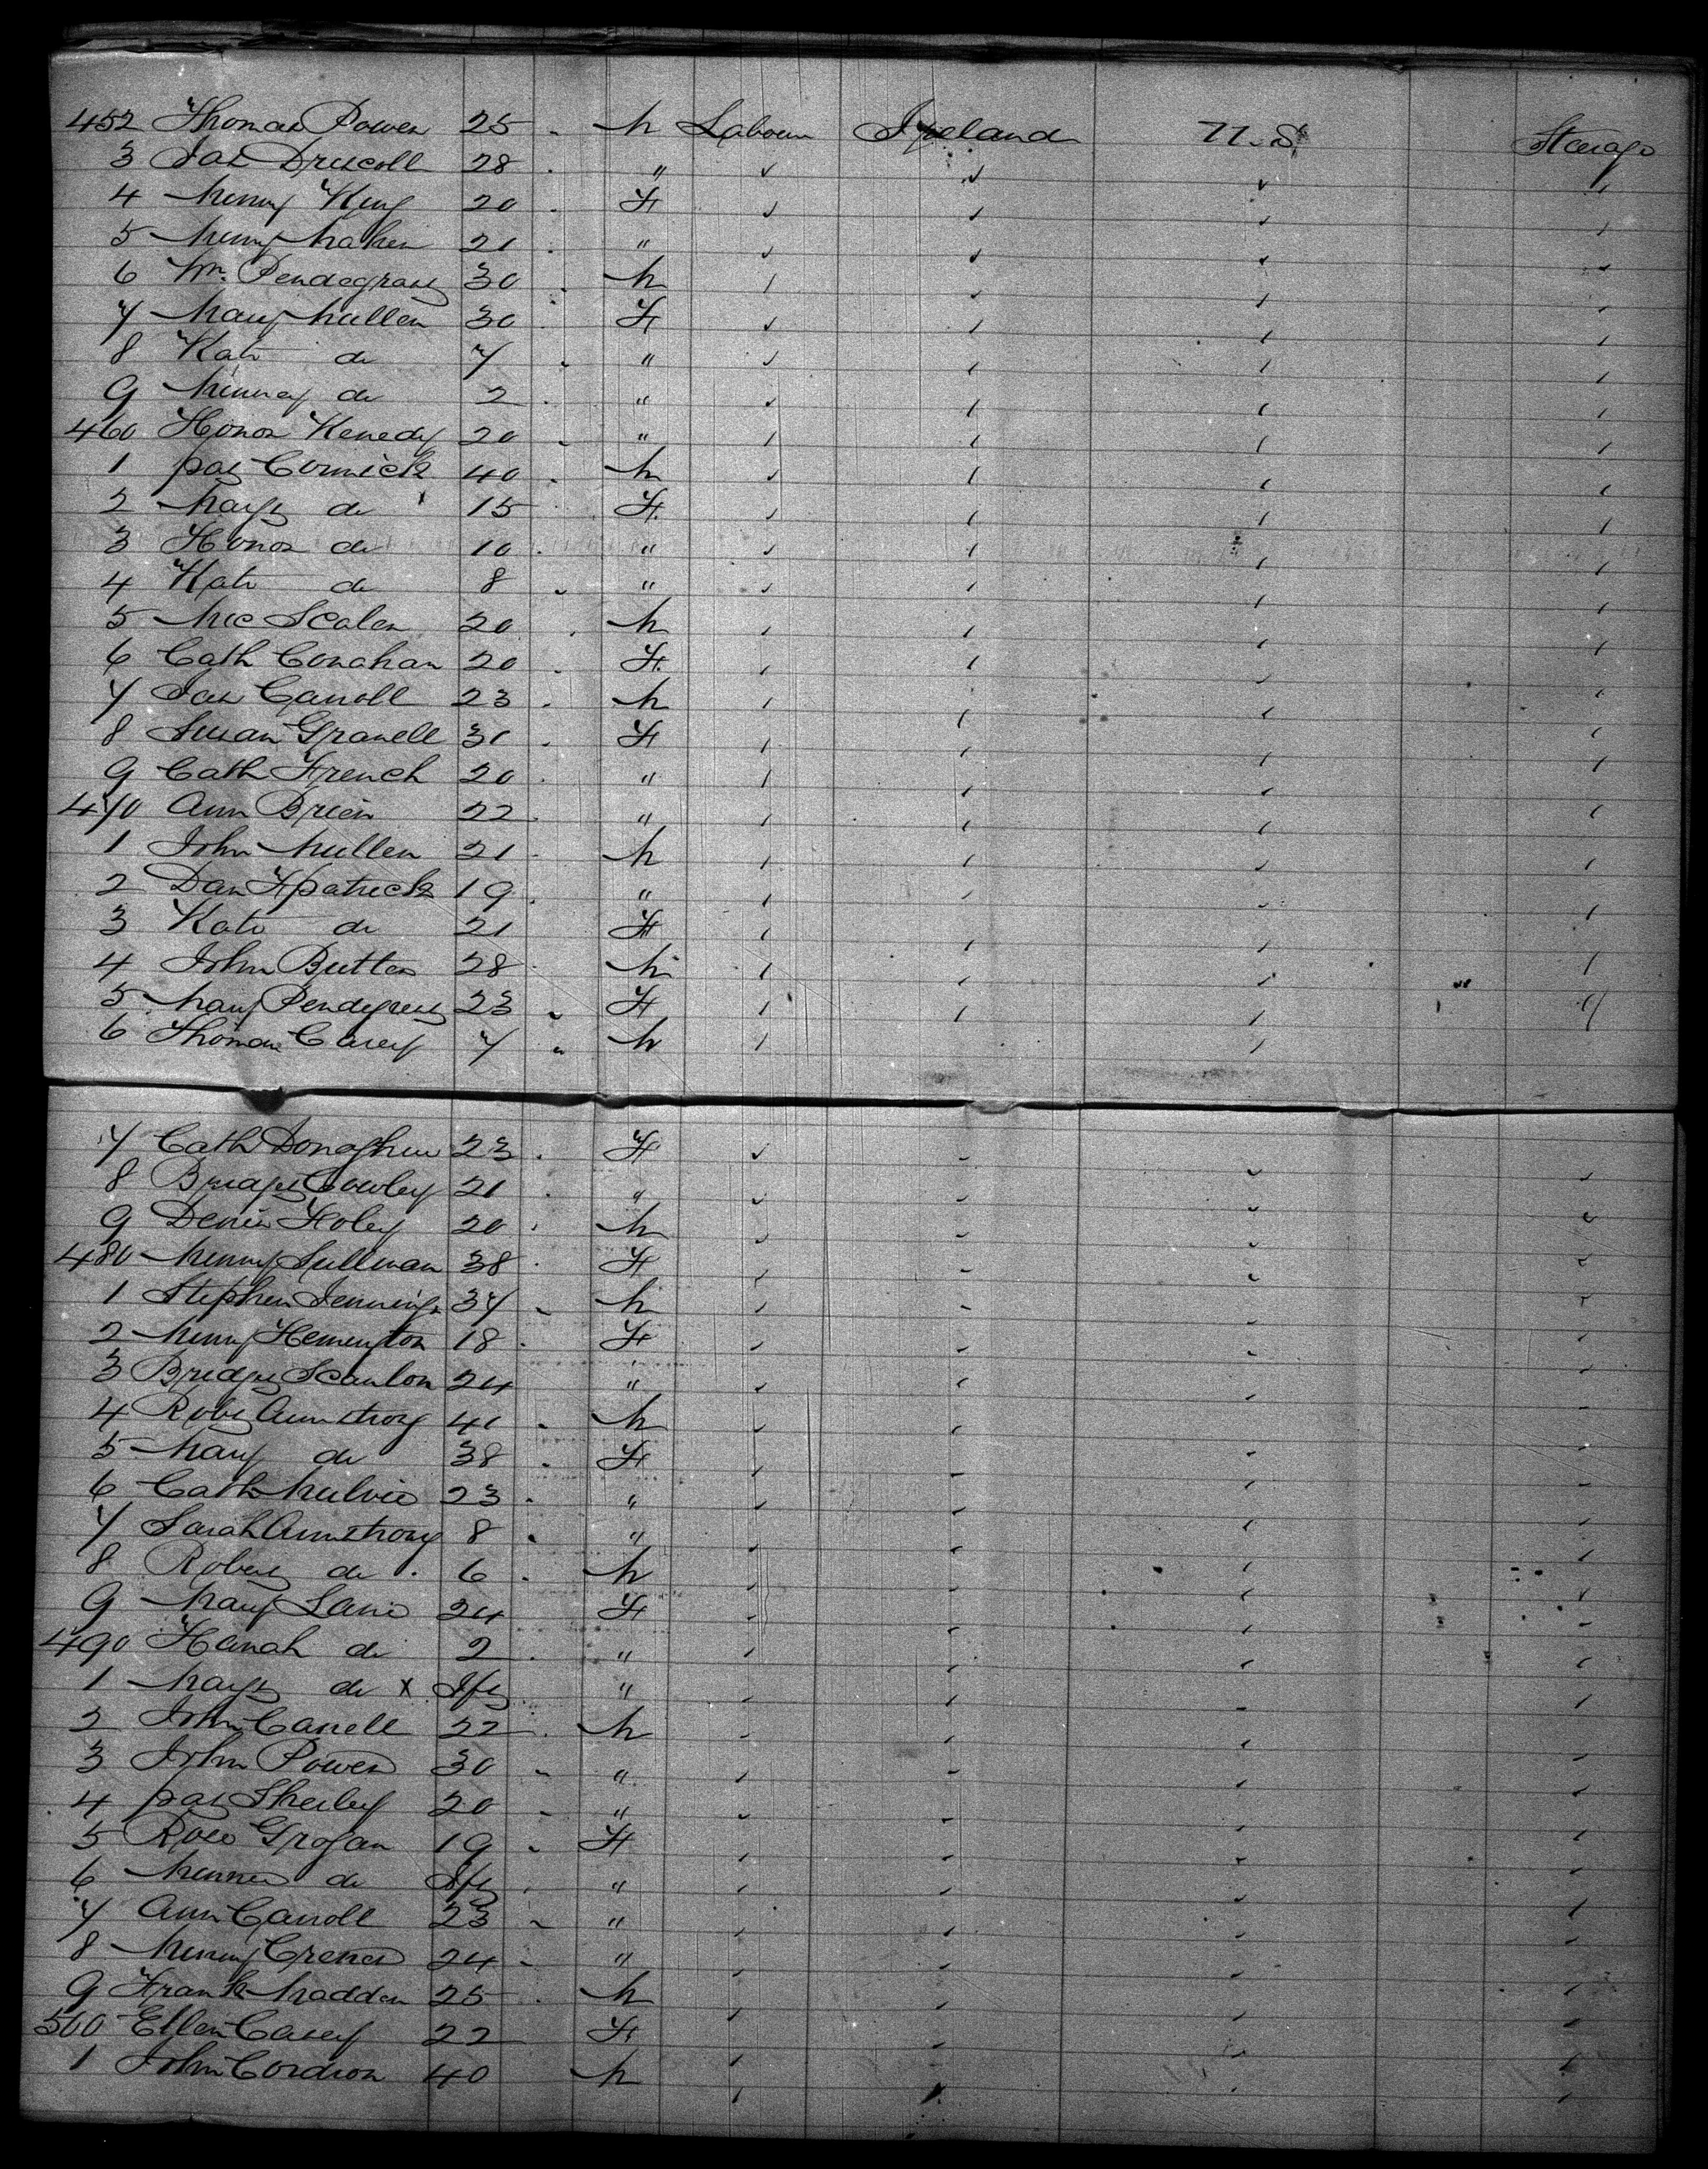 452 Thomas Power 25 " M Labourer Ireland U.S. Steerage
3 Jas Driscoll 28 " "
4 Minny King 20 " F
5 Minny Maher 21 " "
6 Wm. Pendegrass 30 " M
7 Mary Mullen 30 F
8 Kate do 7 " "
9 Minney do 2 " "
460 Honor Kenedy 20 " "
1 pat Cormick 40 " M
2 Mary do 15 F
3 Honor do 10 " "
4 Kate do 8 " "
5 Mic Scalen 20 " M
6 Cath Conahan 20 " F
7 Jas Carroll 23 " M
8 Susan Granell 31 " F
9 Cath French 20 " "
470 Ann Brien 22 " "
1 John Mullen 21 " M
2 Dan Fpatrick 19 " "
3 Kate do 21 F
4 John Butler 28 " M
5 Mary Pendegress 23 " F
6 Thomas Casey 7 " M
7 Cath Donaghue 23 " F
8 Bridget Cowley 21 " "
9 Denis Foley 20 " M
480 Minny Sullivan 38 " F
1 Stephen Jennings 37 " M
2 Minny Hemington 18 " F
3 Bridget Scanlon 24 "
4 Robt Armstrong 41 " M
5 Mary do 38 " F
6 Cath Mulvie 23 " "
7 Sarah Armstrong 8 " "
8 Robert do 6 " M
9 Mary Lane 24 F
490 Hanah do 2 " "
1 Mary do x Ift "
2 John Carrell 22 " M
3 John Power 30 " "
4 pat Sheiley 20 " "
5 Rose Grogan 19 " F
6 Minnie do Ift " "
7 Ann Carroll 23 " "
8 Minny Crenan 24 " "
9 Frank Madden 25 " M
500 Ellen Casey 22 F
1 John Cordion 40 M